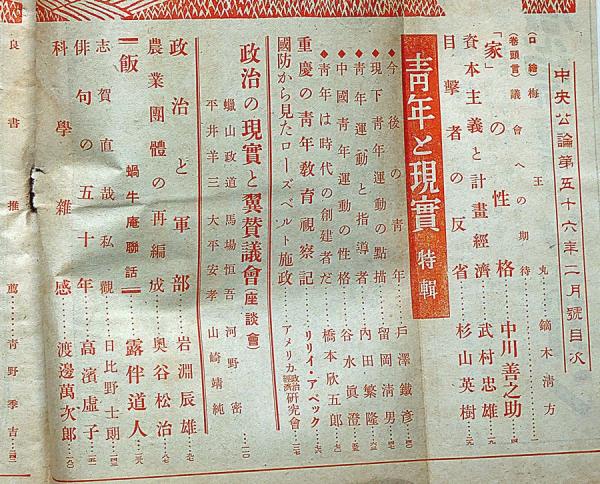 中央公論第五十六年二月號目次
(口繪)梅王丸……鏑木淸方
(卷頭言)議會への期待……一
「家」の性格……中川善之助…四
資本主義と計畫經濟……武村忠雄…一九
目擊者の反省……杉山英樹…二九
靑年と現實 特輯
◆今後の靑年……戶澤鐵彥…(四〇)
◆現下靑年運動の點描……留岡淸男…(四七)
◆靑年運動と指導者……內田繁隆…(六三)
◆中國靑年運動の性格……谷水眞澄…(五五)
◆靑年は時代の創建者だ……橋本欣五郎
重慶の靑年敎育視察記……リリイ・アベック…(七六)
國防から見たローズベルト施政……アメリカ政治經濟硏究會…(一二七)
政治の現實と翼贊議會(座談會)
蠟山政道 馬場恒吾 河野密
平井羊三 大平安孝 山崎靖純……二一〇
政治と軍部……岩淵辰雄…九七
農業團體の再編成……奧谷松治
飯 蝸牛庵聯話……露伴道人
志賀直哉私觀……日比野士朗
俳句の五十年……高濱虛子
科學雜感……渡邊萬次郎…(一八〇)
良書推薦……靑野季吉…(二四二)